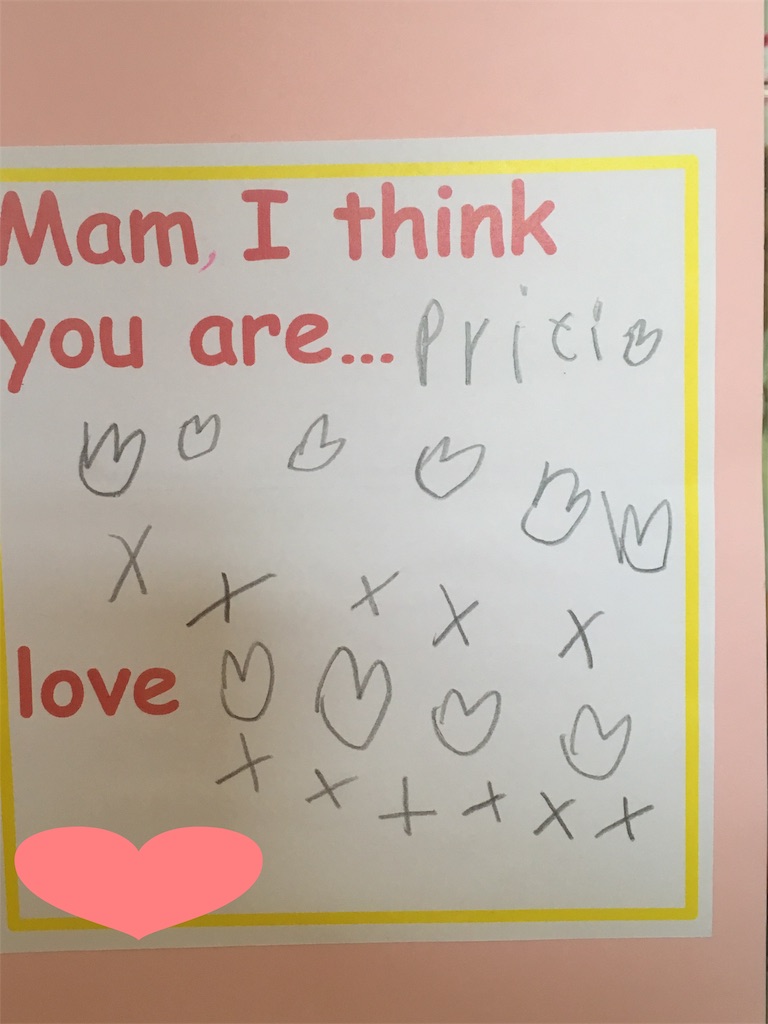 Mam, I think
you are... priti
x x x x x
love
x x x x x x